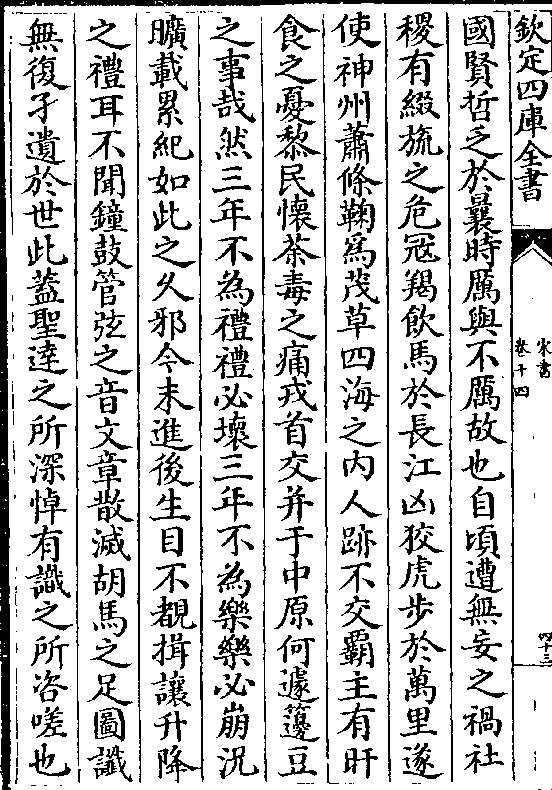 欽定四庫全書
宋書
卷十四
四十三
國賢哲乏於曩時厲與不厲故也自頃遭無妄之禍社
稷有綴旒之危冦羯飲馬於長江凶狡虎步於萬里遂
使神州蕭條鞠為茂草四海之内人跡不交霸主有旰
食之憂黎民懷荼毒之痛戎首交并于中原何遽籩豆
之事哉然三年不為禮禮必壞三年不為樂樂必崩況
曠載累紀如此之久邪今末進後生目不覩揖讓升降
之禮耳不聞鐘鼓管弦之音文章散滅胡馬之足圖讖
無復孑遺於世此蓋聖逹之所深悼有識之所咨嗟也